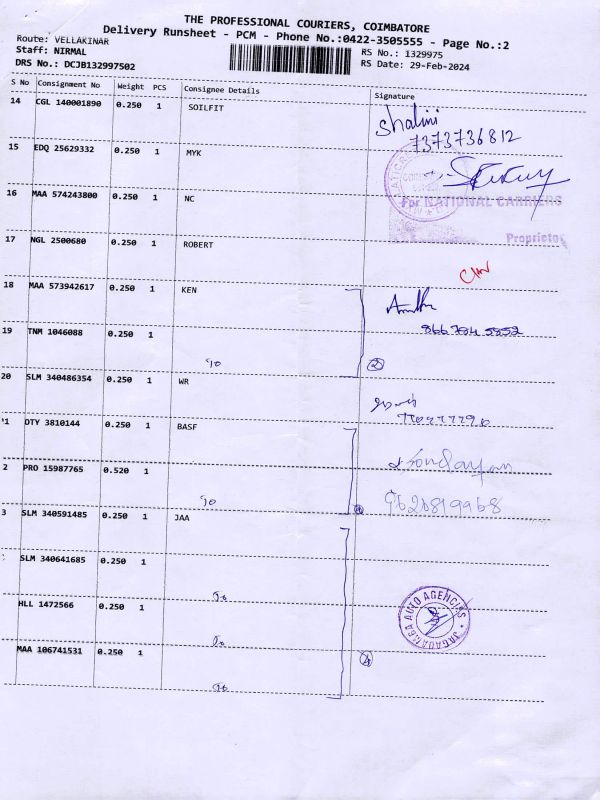 THE PROFESSIONAL COURIERS, COIMBATORE
Delivery Runsheet - PCM - Phone No.:0422-3505555 - Page No.:2
Route: VELLAKINAR
RS No.: 1329975
Staff: NIRMAL
RS Date: 29-Feb-2024
DRS No.: DCJB132997502
S No Consignment No Weight PCS Consignee Details Signature
14 CGL 140001890 0.250 1 SOILFIT Shalini
7373736812
15 EDQ 25629332 0.250 1 MYK
16 MAA 574243800 0.250 1 NC For NATIONAL CARRIERS
17 NGL 2500680 0.250 1 ROBERT Proprietor
18 MAA 573942617 0.250 1 KEN
19 TNM 1046088 0.250 1
2
20 SLM 340486354 0.250 1 WR
'1 DTY 3810144 0.250 1 BASF
2 PRO 15987765 0.520 1
3 SLM 340591485 0.250 1 JAA
SLM 340641685 0.250 1
HLL 1472566 0.250 1
AUTO AGENCIES
MAA 106741531 0.250 1
4